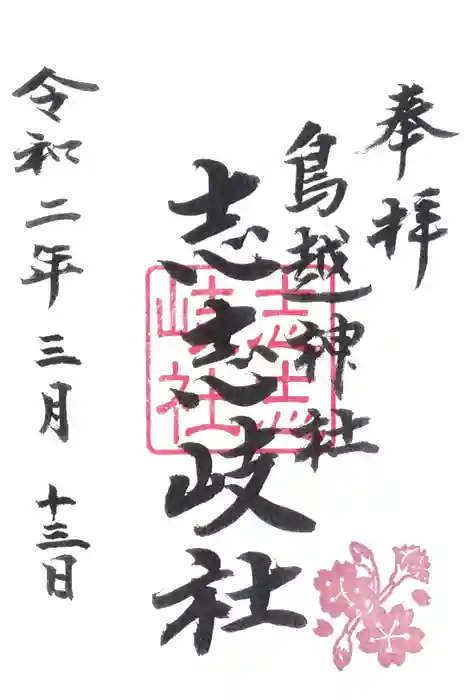 奉拝
鳥越神社
志志岐社
志志岐社
令和二年三月十三日